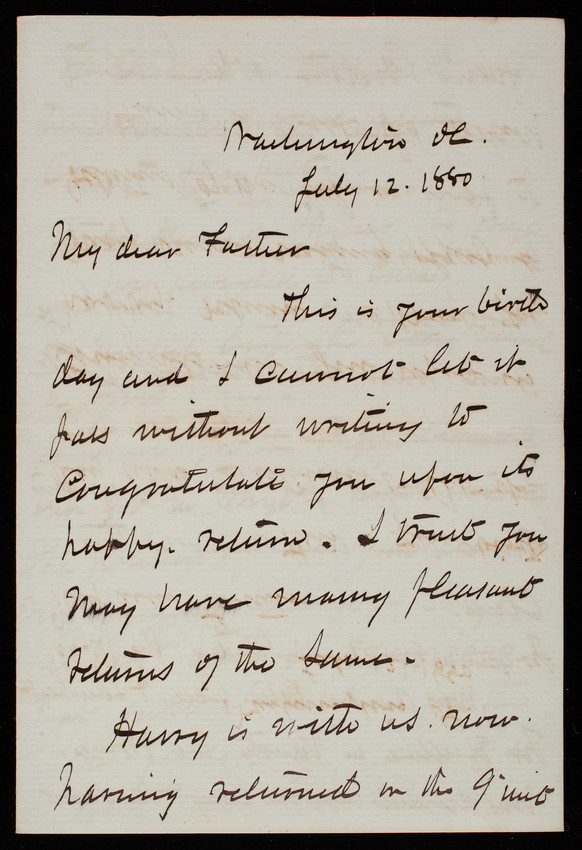 Washington DC.
July 12. 1880
My dear Father
This is your birth
day and I cannot let it
pass without writing to
Congratulate you upon its
happy. return. I trust you
May have many pleasant
returns of the same.
Harry is with us. now.
having returned on the 9" inst